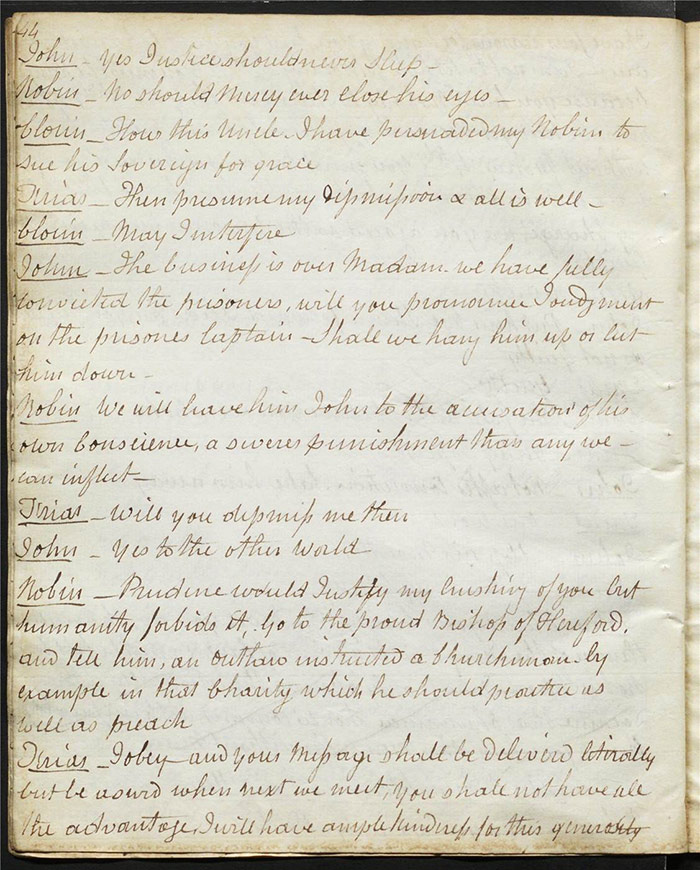 44
John - Yes Justice should never Sleep -
Robin - No should Mercy ever close his eyes -
Clorin - Hows this Uncle - I have persuaded my Robin to
sue his Sovereign for grace
Friar - Then presume my dismission & all is well -
Clorin - May I interfere
John - The business is over Madam - we have fully
convicted the prisoners, will you pronounce Joudgment
on the prisoner Captain - Shall we hang him up or cut
him down -
Robin We will leave him John to the accusation of his
own Conscience, a severer punishment than any we -
can inflict
Friar - Will you dismiss me then
John - Yes to the other World
Robin - Prudence would Justify my crushing of you but
humanity forbids it, Go to the proud Bishop of Hereford,
and tell him, an outlaw instructed a Churchman by
example in that Charity which he should practice as
well as preach
Friar - I obey and your Message shall be deliverd literally
but be assurd when next we meet, you shall not have all
the advantage, I will have ample kindness for this generosity